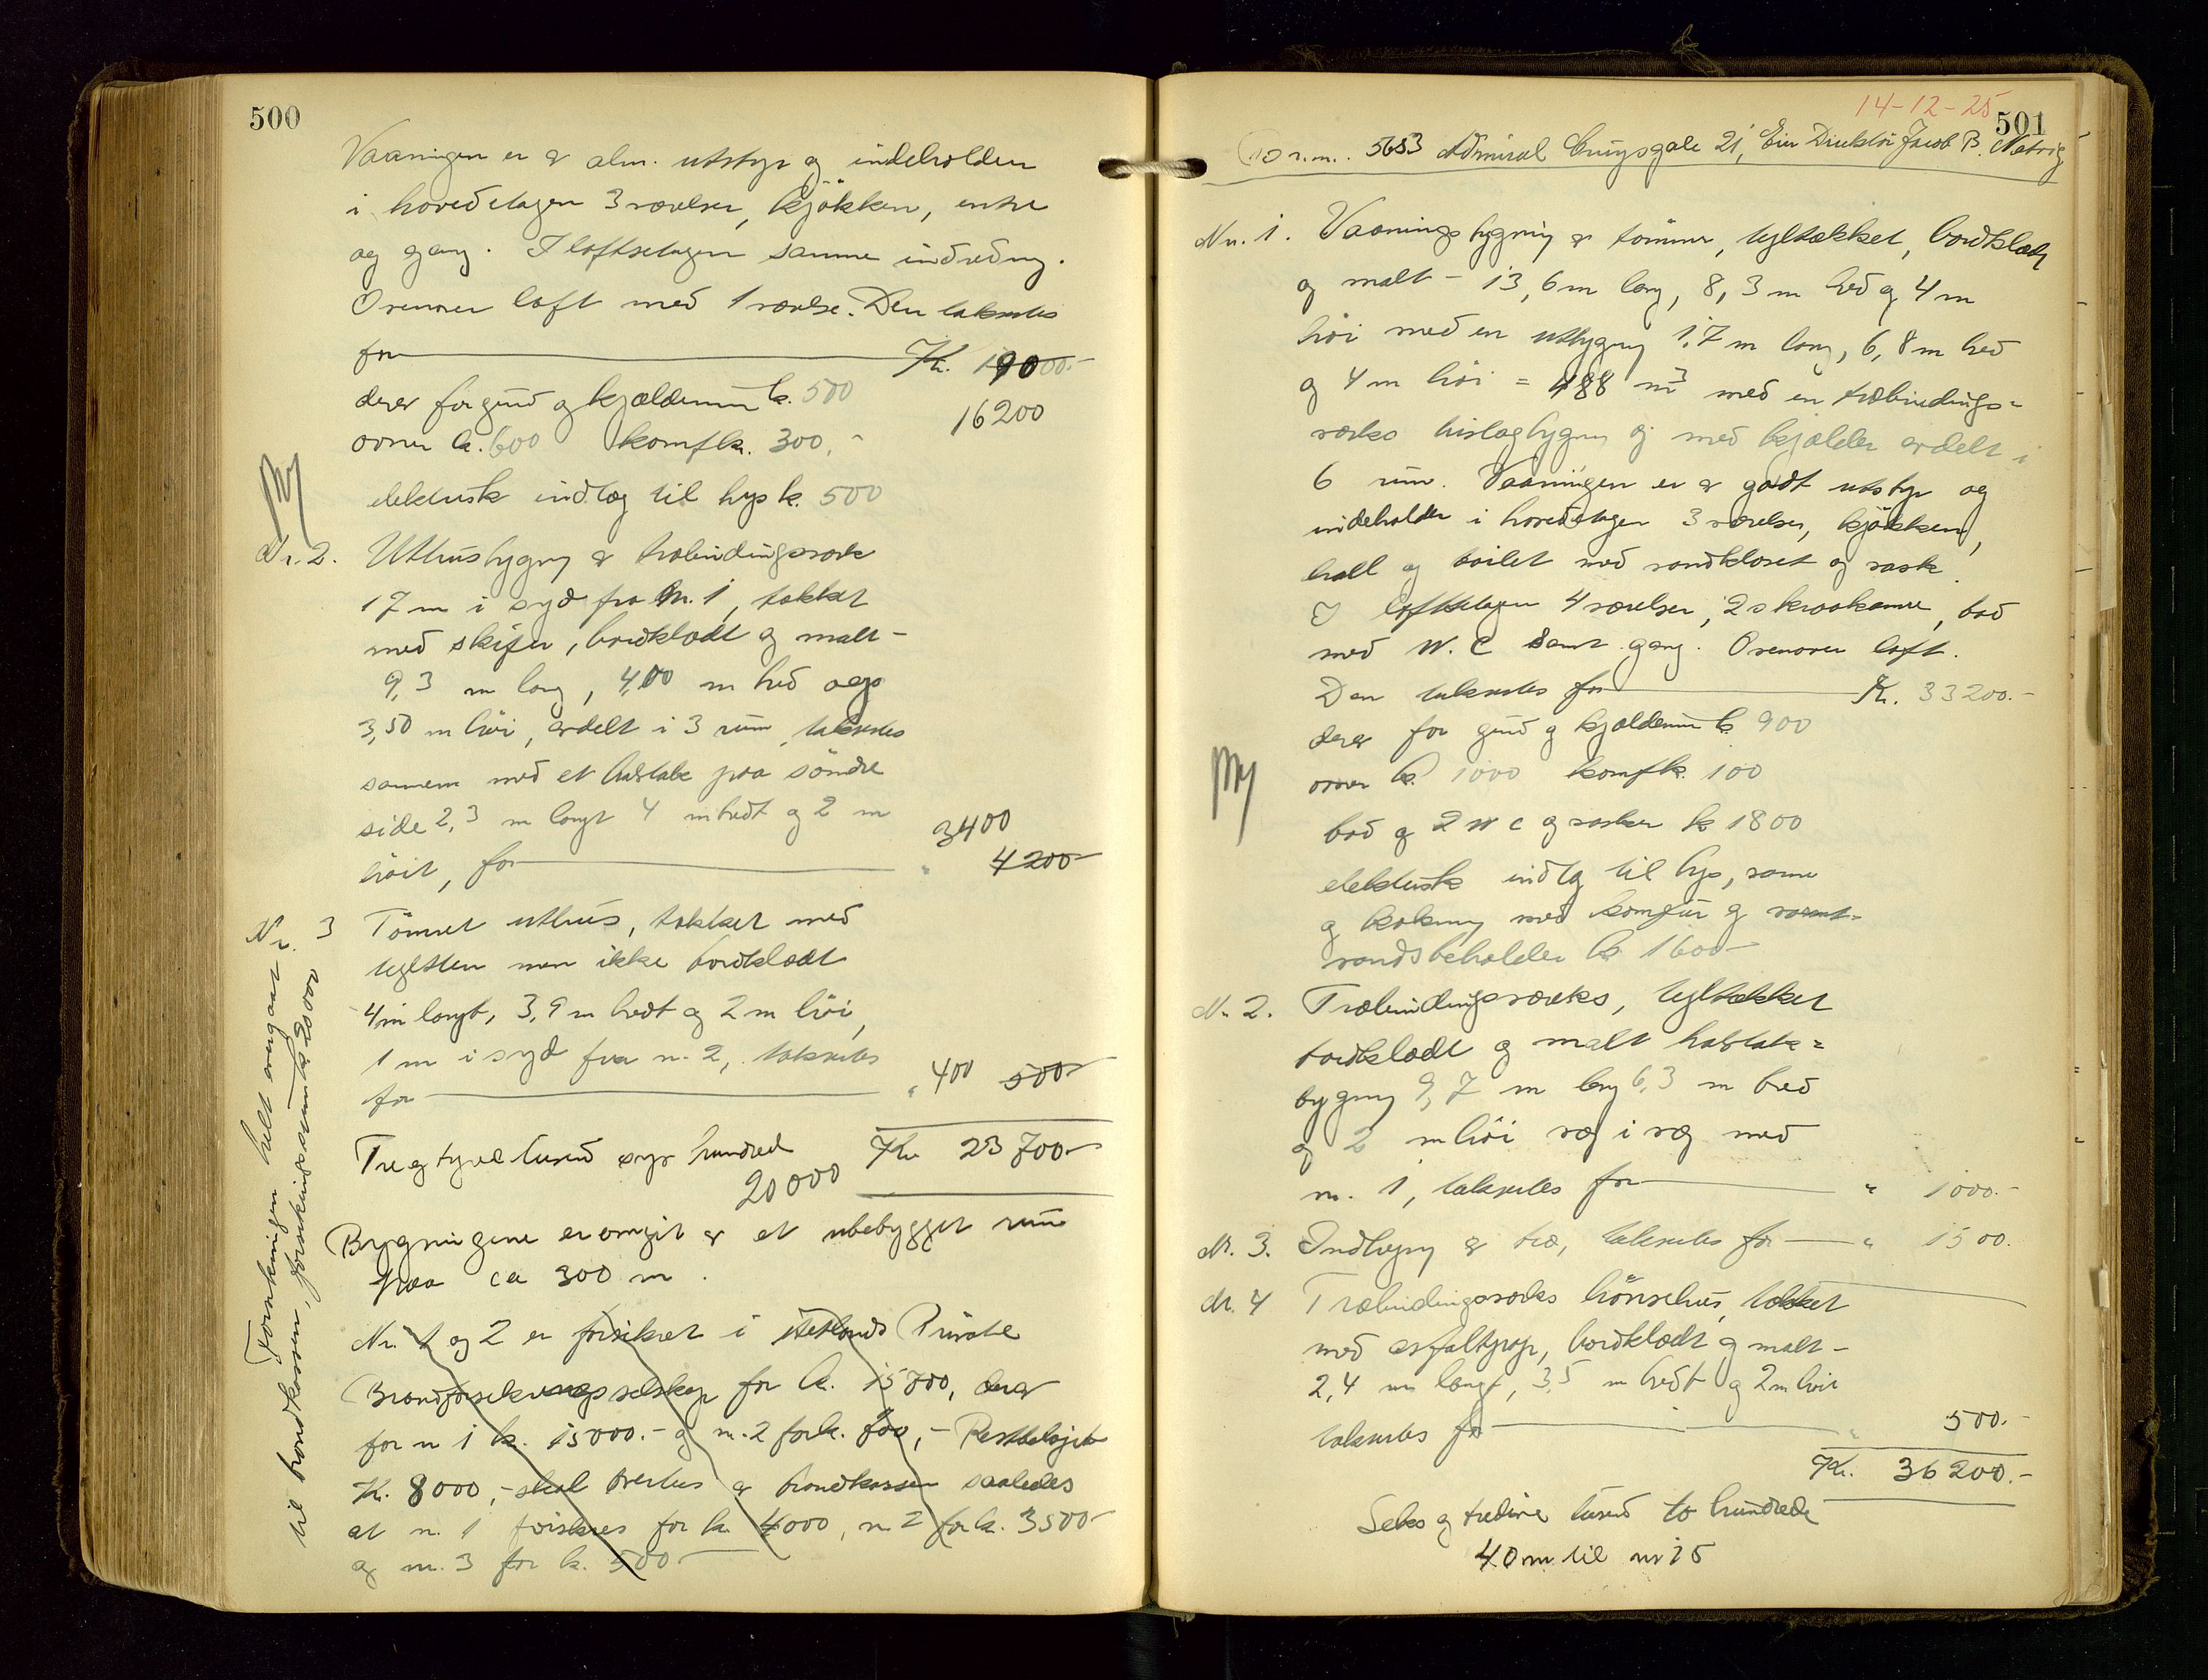 500
Vaaningen er av alm. utstyr og indeholder
i hovedetagen 3 værelser, kjøkken, entre
og gang. I loftsetagen samme indredning.
Ovenover loft med 1 værelse. Den takseres
for Kr.
16200
derav for grund og kjældermur k. 500
ovner k. 600 komf k. 300,-
elektrisk indlæg til lys k. 500
Nr. 2. Uthusbygning av træbindingsverk
17 m i syd fra nr. 1, tækket
med skifer, bordklædt og malt -
9,3 m lang, 4,00 m bred og
3,50 m høi, avdelt i 3 rum, takseres
sammen med et halvtak paa søndre
side 2,3 m langt 4 m bredt og 2 m
høit, for " 3400
4200
Nr. 3 Tømret uthus, tækket med
teglsten men ikke bordklædt
4 m langt, 3,9 m bredt og 2 m høi,
1 m i syd fra nr. 2, takseres
for " 400 500
Tre og tyve tusend syv hundred Kr. 23700
20000
Bygningene er omgit av et ubebygget rum
paa ca 300 m.
Nr. 1 og 2 er forsikret i Hetlands Private
Brandforsikringsselskap for k. 15700, derav
for nr 1 k. 15000.- og nr. 2 for k. 700,- Restbeløpet
Kr. 8000,- skal overtas av brandkassen saaledes
at nr. 1 forsikres for k. 4000, nr 2 for k. 3500
og nr. 3 for k. 500
Forsikringen helt overgaat
til brandkassen, forsikringssum k. 20000
14-12-25
501
Br.nr. 5653 Admiral Cruysgate 21, Eier Direktør Jacob B. Natvig
Nr. 1. Vaaningsbygning av tømmer, tegltækket, bordklædt
og malt - 13,6 m lang, 8,3 m bred og 4 m
høi med en utbygning 1,7 m lang, 6,8 m bred
og 4 m høi = 488 m3 med en træbindings=
verks bislagbygning og med kjælder avdelt i
6 rum. Vaaningen er av godt utstyr og
indeholder i hovedetagen 3 værelser, kjøkken,
hall og toilet med vandkloset og vask.
I loftsetagen 4 værelser, 2 skraakamre, bad
med W.C samt gang. Ovenover loft.
Den takseres for Kr. 33200.-
derav for grund og kjældermur k. 900
ovner k. 1000 komf k. 100
bad og 2 w c og vasker k 1800
elektrisk indlæg til lys, varme
og kokning med komfur og varmt=
vandsbeholder k. 1600
Nr. 2. Træbindingsverks, tegltækket
bordklædt og malt halvtak=
bygning 9,7 m lang 6,3 m bred
og 2 m høi væg i væg med
nr. 1, takseres for " 1000.-
Nr. 3. Indhegning av træ, takseres for " 1500.
Nr. 4 Træbindingsverks hønsehus, tækket
med asfaltpap, bordklædt og malt -
2,4 m langt, 3,5 m bredt og 2 m høit
takseres for " 500.-
Kr. 36200.-
Seks og tredive tusend to hundrede
40 m til nr 25